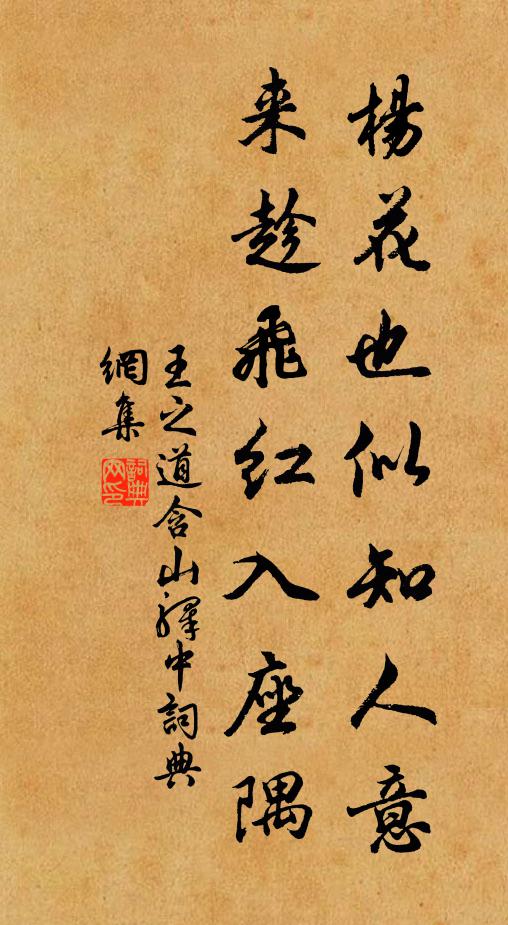 楊花也似知人意
来趁飛紅入座隅
王之道含山驛中詞典
網集
詞典
网印